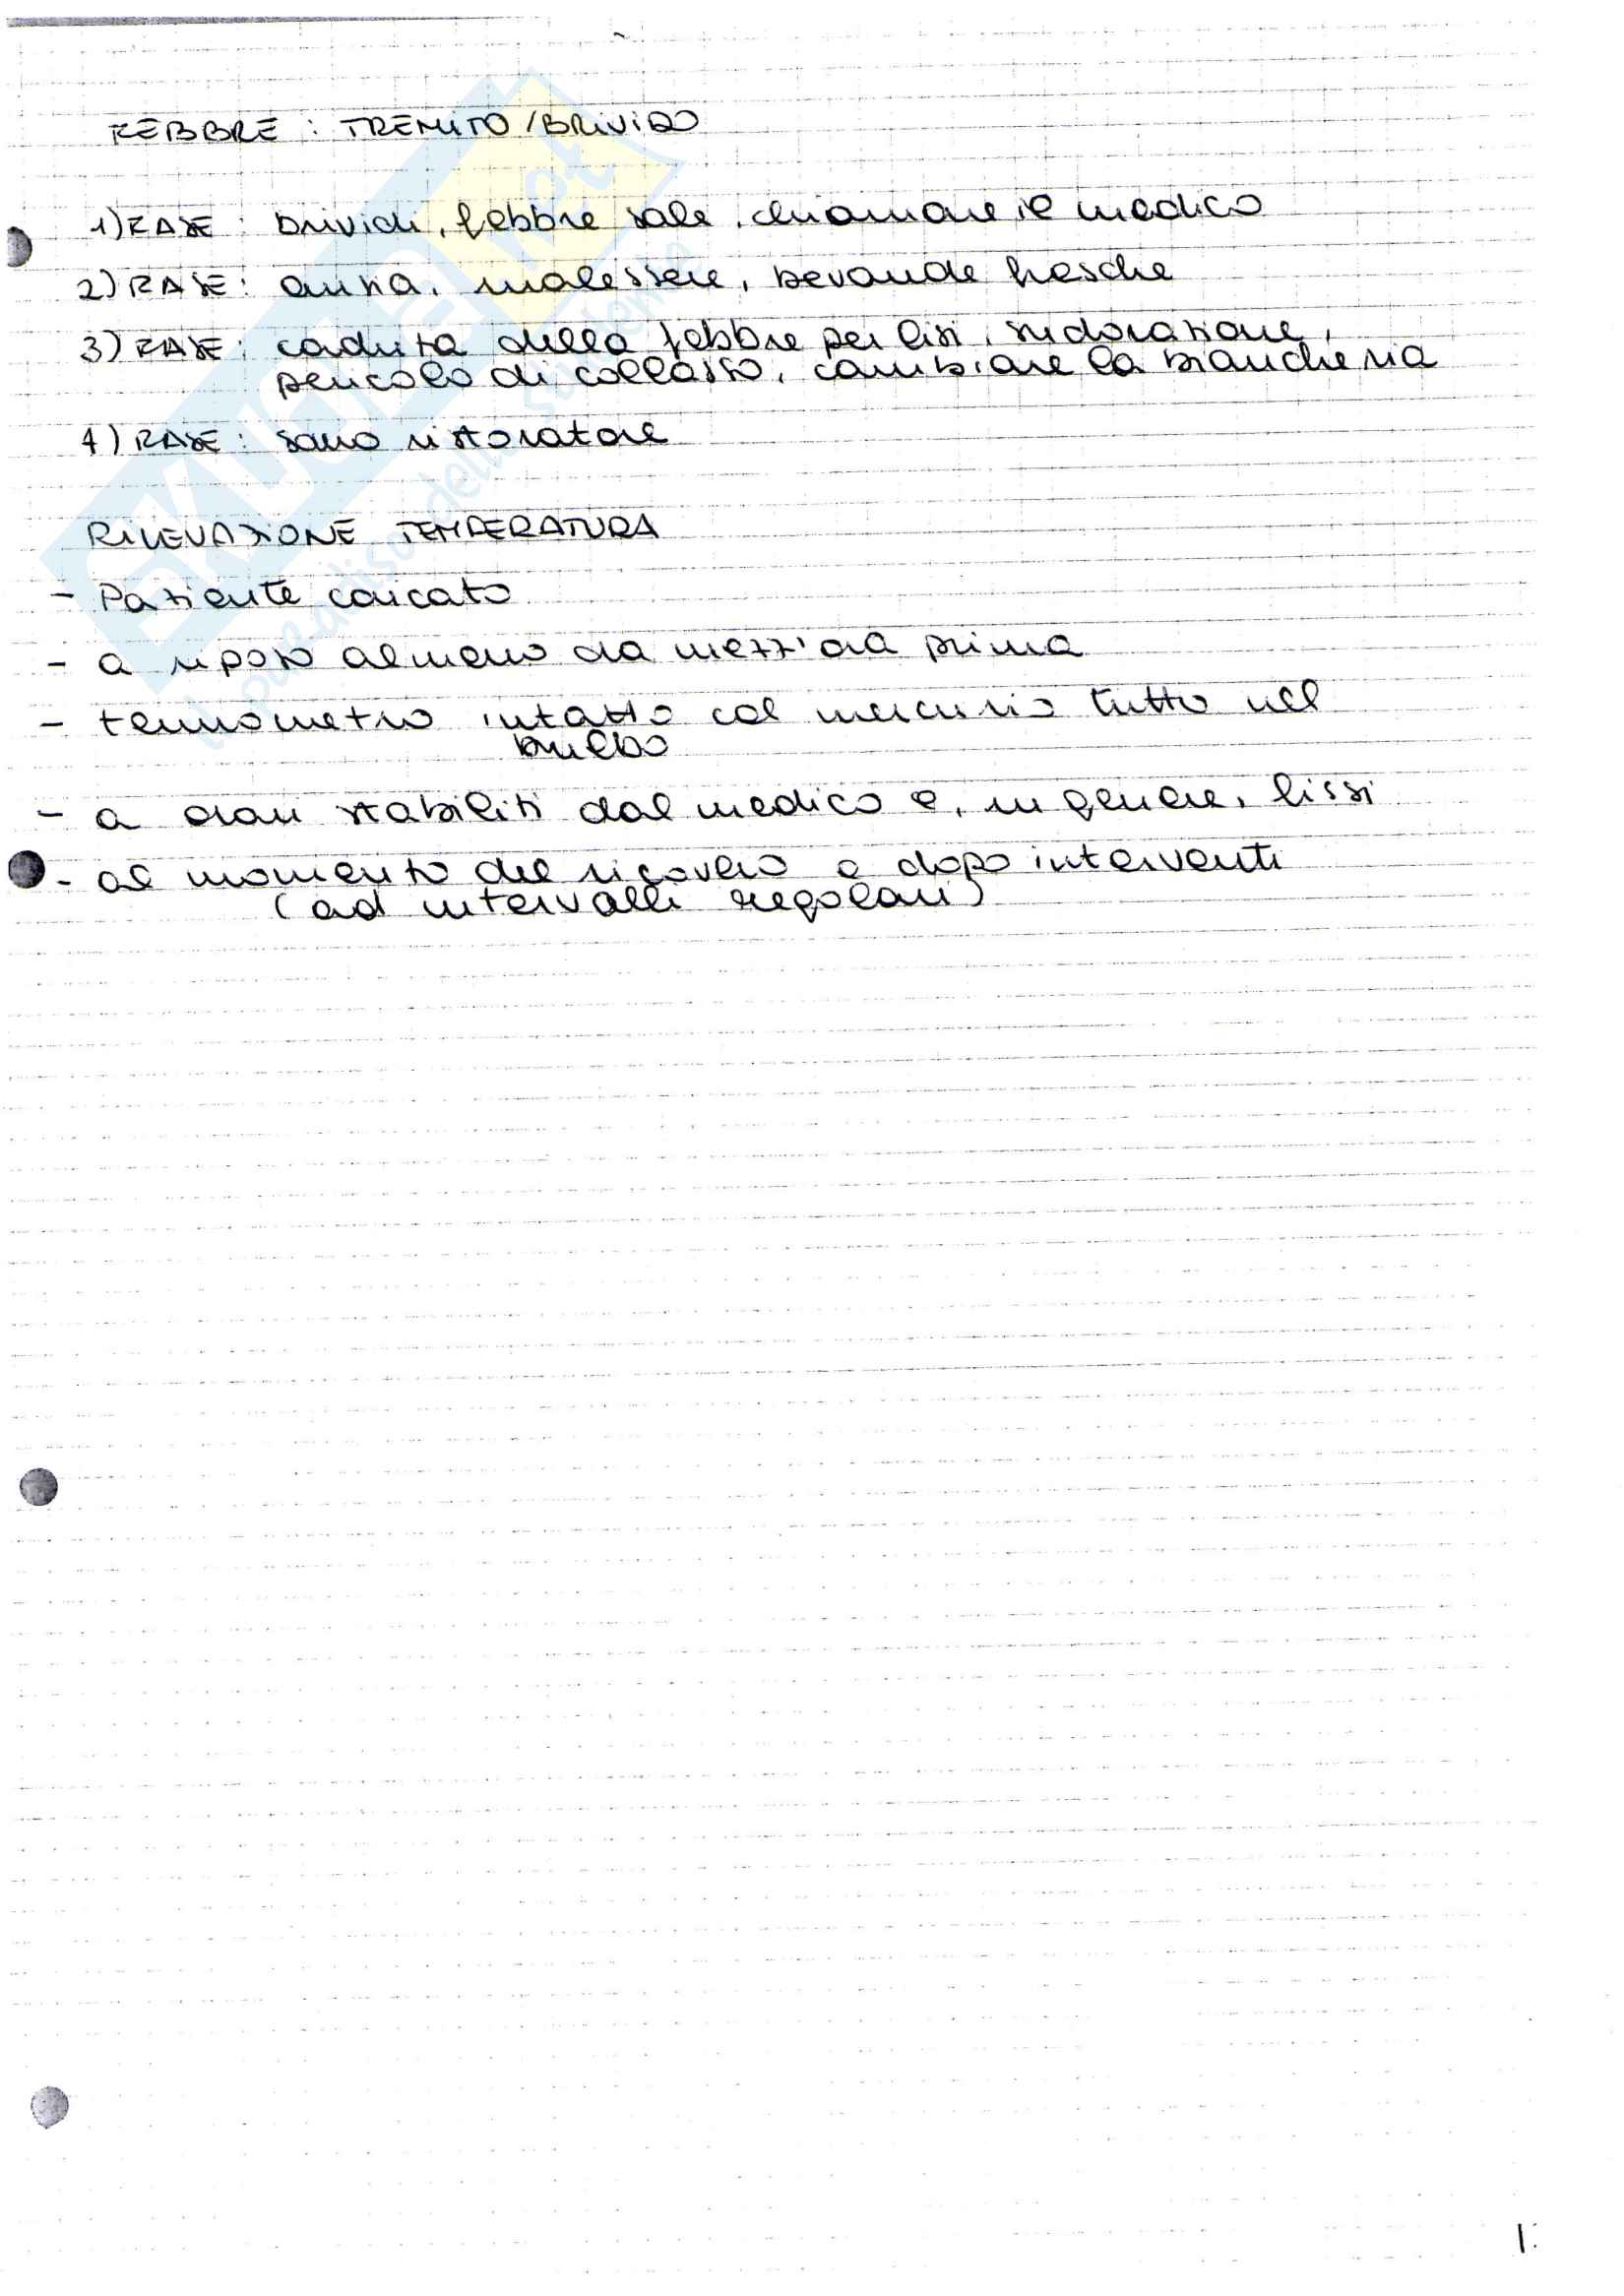 FEBBRE : TREMITO / BRIVIDO
1) FASE : brividi, febbre sale, chiamare il medico
2) FASE : ansia, malessere, bevande fresche
3) FASE : caduta della febbre per lisi, sudorazione,
pericolo di collasso, cambiare la biancheria
4) FASE : sono ristoratore
RILEVAZIONE TEMPERATURA
- Paziente coricato
- a riposo almeno da mezz'ora prima
- termometro intatto col mercurio tutto nel
bulbo
- a orari stabiliti dal medico e, in genere, fissi
- al momento del ricovero e dopo interventi
(ad intervalli regolari)